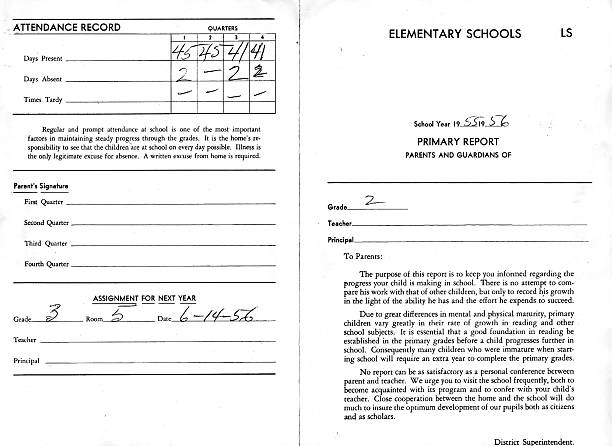 ATTENDANCE RECORD
QUARTERS
1 2 3 4
Days Present 45 45 41 41
Days Absent 2 — 2 2
Times Tardy — — — —
Regular and prompt attendance at school is one of the most important
factors in maintaining steady progress through the grades. It is the home's re-
sponsibility to see that the children are at school on every day possible. Illness is
the only legitimate excuse for absence. A written excuse from home is required.
Parent's Signature
First Quarter
Second Quarter
Third Quarter
Fourth Quarter
ASSIGNMENT FOR NEXT YEAR
Grade 3 Room 5 Date 6-14-56
Teacher
Principal
ELEMENTARY SCHOOLS LS
School Year 19 55 19 56
PRIMARY REPORT
PARENTS AND GUARDIANS OF
Grade 2
Teacher
Principal
To Parents:
The purpose of this report is to keep you informed regarding the
progress your child is making in school. There is no attempt to com-
pare his work with that of other children, but only to record his growth
in the light of the ability he has and the effort he expends to succeed.
Due to great differences in mental and physical maturity, primary
children vary greatly in their rate of growth in reading and other
school subjects. It is essential that a good foundation in reading be
established in the primary grades before a child progresses further in
school. Consequently many children who were immature when start-
ing school will require an extra year to complete the primary grades.
No report can be as satisfactory as a personal conference between
parent and teacher. We urge you to visit the school frequently, both to
become acquainted with its program and to confer with your child's
teacher. Close cooperation between the home and the school will do
much to insure the optimum development of our pupils both as citizens
and as scholars.
District Superintendent.